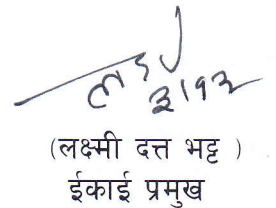 ३।१२
(लक्ष्मी दत्त भट्ट )
ईकाई प्रमुख